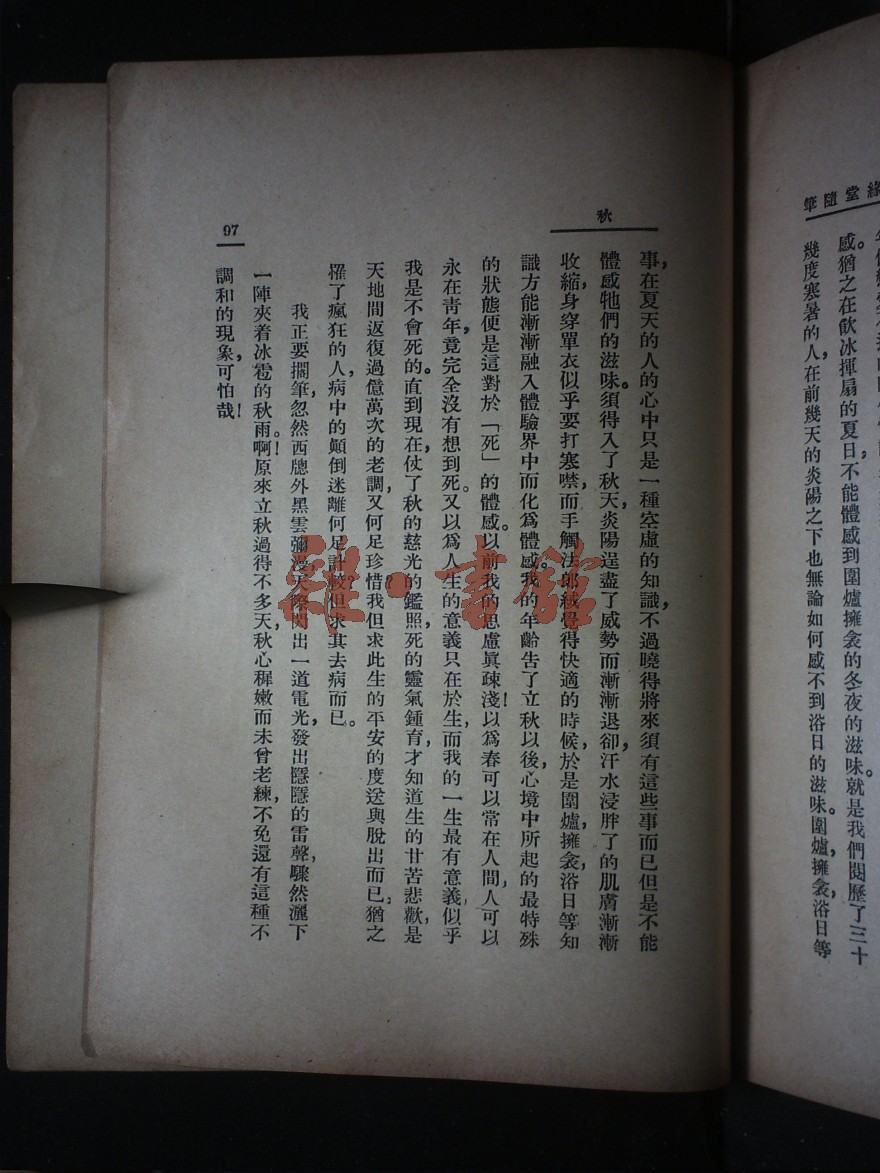 緣堂隨筆
感。猶之在飲冰揮扇的夏日,不能體感到圍爐擁衾的冬夜的滋味。就是我們閱歷了三十
幾度寒暑的人,在前幾天的炎陽之下也無論如何感不到浴日的滋味。圍爐,擁衾,浴日等
秋
事,在夏天的人的心中只是一種空虛的知識,不過曉得將來須有這些事而已但是不能
體感牠們的滋味。須得入了秋天,炎陽逞盡了威勢而漸漸退卻,汗水浸胖了的肌膚漸漸
收縮,身穿單衣似乎要打寒噤,而手觸法郎絨覺得快適的時候,於是圍爐,擁衾,浴日等知
識方能漸漸融入體驗界中而化爲體感。我的年齡告了立秋以後,心境中所起的最特殊
的狀態便是這對於「死」的體感。以前我的思慮眞疎淺!以爲春可以常在人間,人可以
永在靑年,竟完全沒有想到死。又以爲人生的意義只在於生,而我的一生最有意義,似乎
我是不會死的。直到現在,仗了秋的慈光的鑑照,死的靈氣鍾育,才知道生的甘苦悲歡,是
天地間返復過億萬次的老調,又何足珍惜?我但求此生的平安的度送與脫出而已。猶之
罹了瘋狂的人,病中的顛倒迷離何足計較?但求其去病而已。
我正要擱筆,忽然西牕外黑雲彌漫,天際閃出一道電光,發出隱隱的雷聲,驟然灑下
一陣夾着冰雹的秋雨。啊!原來立秋過得不多天,秋心穉嫩而未曾老練,不免還有這種不
調和的現象,可怕哉!
97
雜·書館